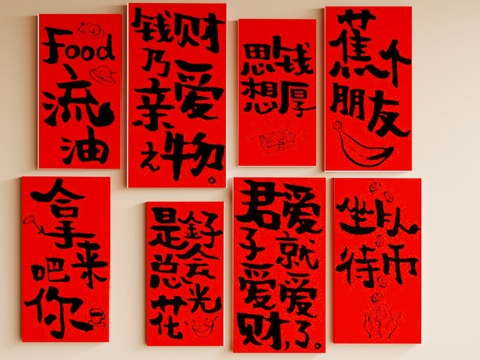 Food
流
油
钱财
乃
亲爱
之物。
思想
钱厚
蕉个
朋友
拿
来
吧
你
是釨
总会
花光
君子爱财,
爱就爱了。
坐以
待币